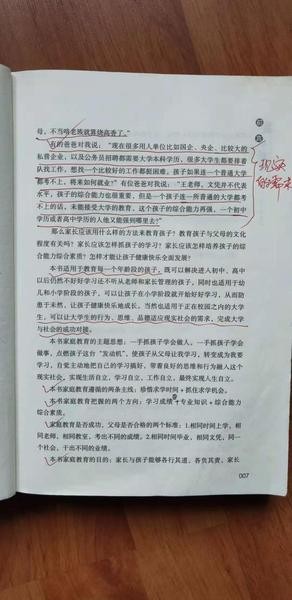 前言
母，不当啃老族就算烧高香了。”
有的爸爸对我说：“现在很多用人单位比如国企、央企、比较大的
私营企业，以及公务员招聘都需要大学本科学历，很多大学生都要排着
队找工作，想找一个比较好的工作都挺困难。孩子如果连一个普通大学
都考不上，将来如何就业？”有位爸爸对我说：“王老师，文凭并不代表
水平，孩子的综合能力也很重要，但是一个孩子连一所普通的大学都考
不上的话，未能接受大学的教育，这个孩子的综合能力再强，一个初中
学历或者高中学历的人他又能强到哪里去？”
现实的需求
那么家长应该用什么样的方法来教育孩子？教育孩子与父母的文化
程度有关吗？家长应该怎样抓孩子的学习？家长应该怎样培养孩子的综
合能力综合素质？怎样才能让孩子健康快乐全面发展？
本书适用于教育每一个年龄段的孩子，既可以解决进入初中、高中
以后仍然不好好学习还不听从老师和家长管理的孩子，同时也适用于幼
儿和小学阶段的孩子，可以让孩子在小学阶段就开始好好学习，从而防
患于未然，让孩子健康快乐地成长，当然也适用于正在校园之内的大学
生，可以让大学生的行为、思维、品德适应现实社会的需求，完成大学
与社会的成功对接。
本书家庭教育的主题思想：一手抓孩子学会做人，一手抓孩子学会
做事，点燃孩子这台“发动机”，使孩子从父母让我学习，转变成为我要
学习，自觉主动地把自己的学习搞好，带着良好的思维和行为融入这个
现实社会，实现生活自立，学习自立，工作自立，最终实现人生自立。
本书家庭教育遵循的两条主线：珍惜求学时间+抓住求学机会。
本书家庭教育把握的两个方向：学习成绩+专业知识+综合能力
综合素质。
家庭教育是否成功，父母是否合格的两个标准：1.相同时间上学，相
同老师，相同教室，考出不同的成绩。2.相同时间毕业，相同文凭，同一
个社会，干出不同的业绩。
本书家庭教育的目的：家长与孩子能够各行其道，各负其责，家长
007